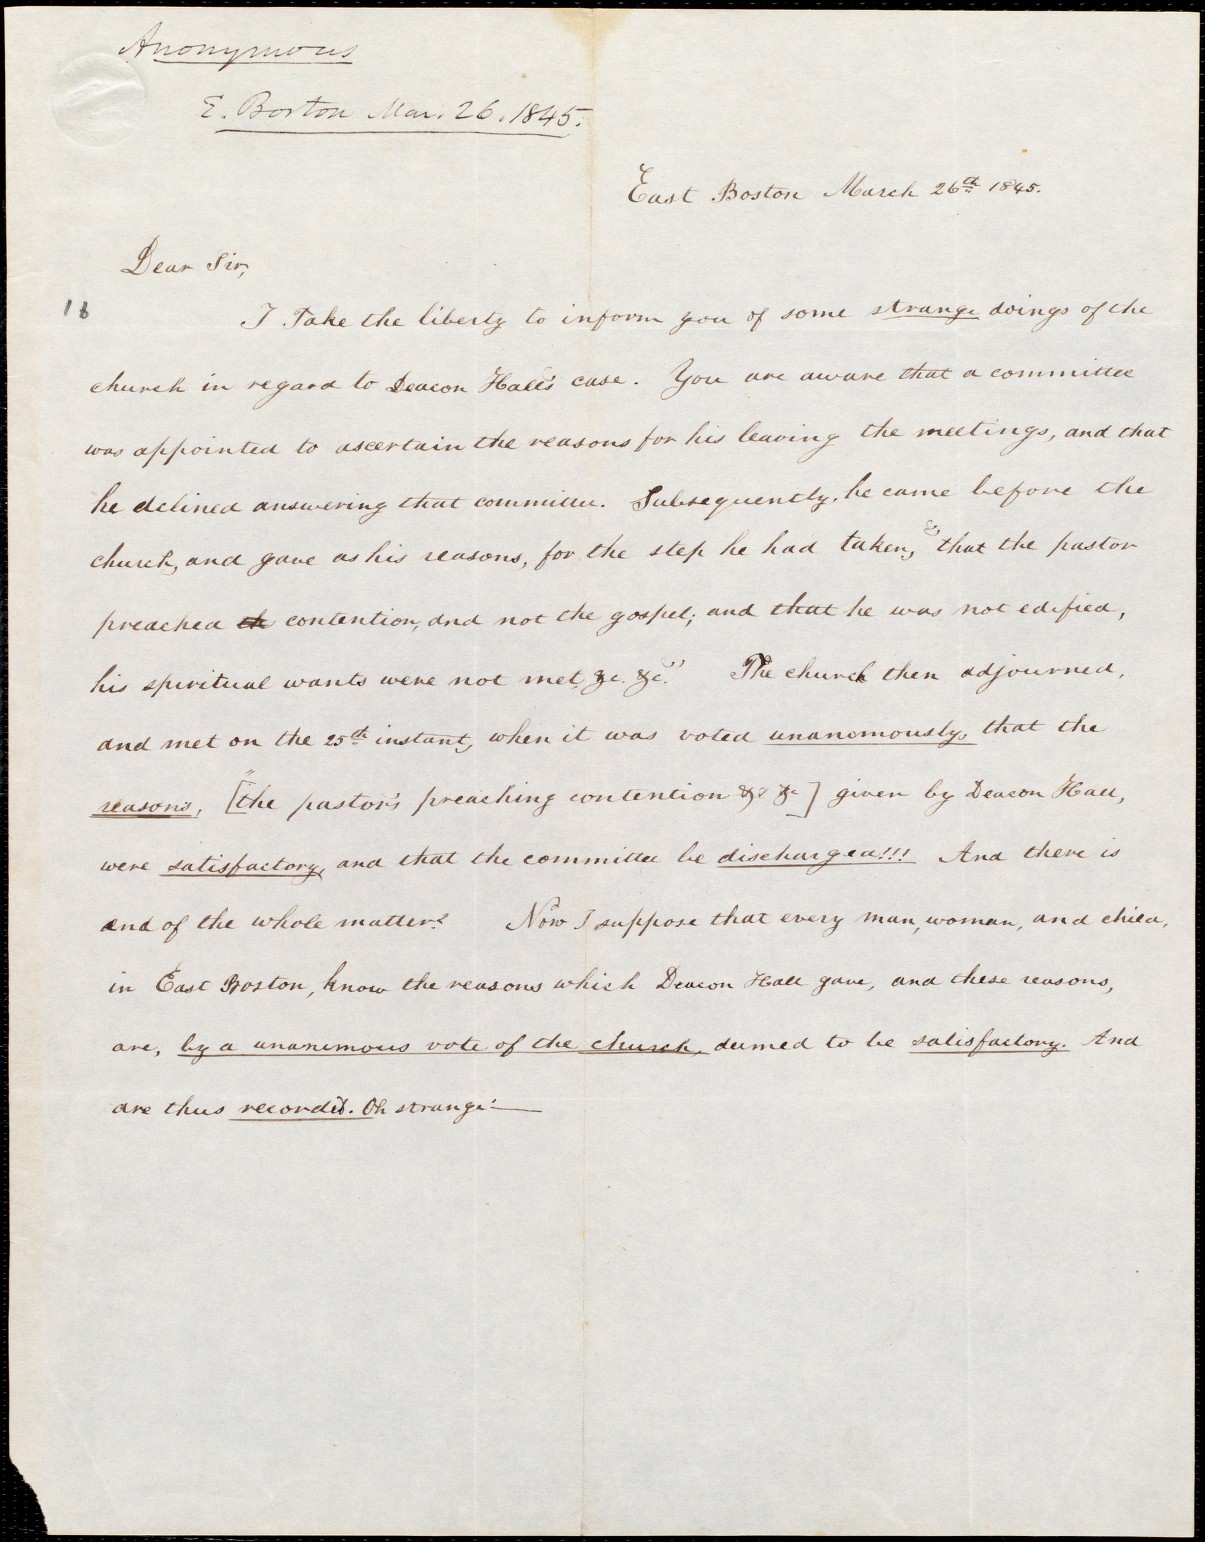 Anonymous
E. Boston Mar. 26. 1845.
East Boston March 26th 1845.
Dear Sir,
I take the liberty to inform you of some strange doings of the
church in regard to Deacon Hall's case. You are aware that a committee
was appointed to ascertain the reasons for his leaving the meetings, and that
he delined answering that committee. Subsequently, he came before the
church, and gave as his reasons, for the step he had taken, "that the pastor
preached th contention, and not the gospel; and that he was not edified,
his spiritual wants were not met, &c. &c." The church then adjourned,
and met on the 25th instant, when it was voted unanomously, that the
reasons, ["the pastor's preaching contention &c &c] given by Deacon Hall,
were satisfactory, and that the committee be discharged!!! And there is
end of the whole matter! Now I suppose that every man, woman, and child,
in East Boston, know the reasons which Deacon Hall gave, and these reasons,
are, by a unanimous vote of the church, deemed to be satisfactory. And
are thus recorded. Oh strange!